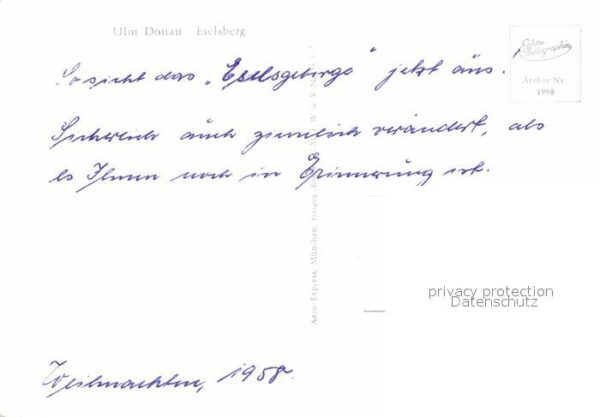 Ulm Donau - Eselsberg
Echte Photographie
Archiv Nr.
1998
So sieht das „Eselsgebirge“ jetzt aus.
Sicherlich auch ziemlich verändert, als
es Ihnen noch in Erinnerung ist.
Aero-Express, München
privacy protection
Datenschutz
Weihnachten, 1958.